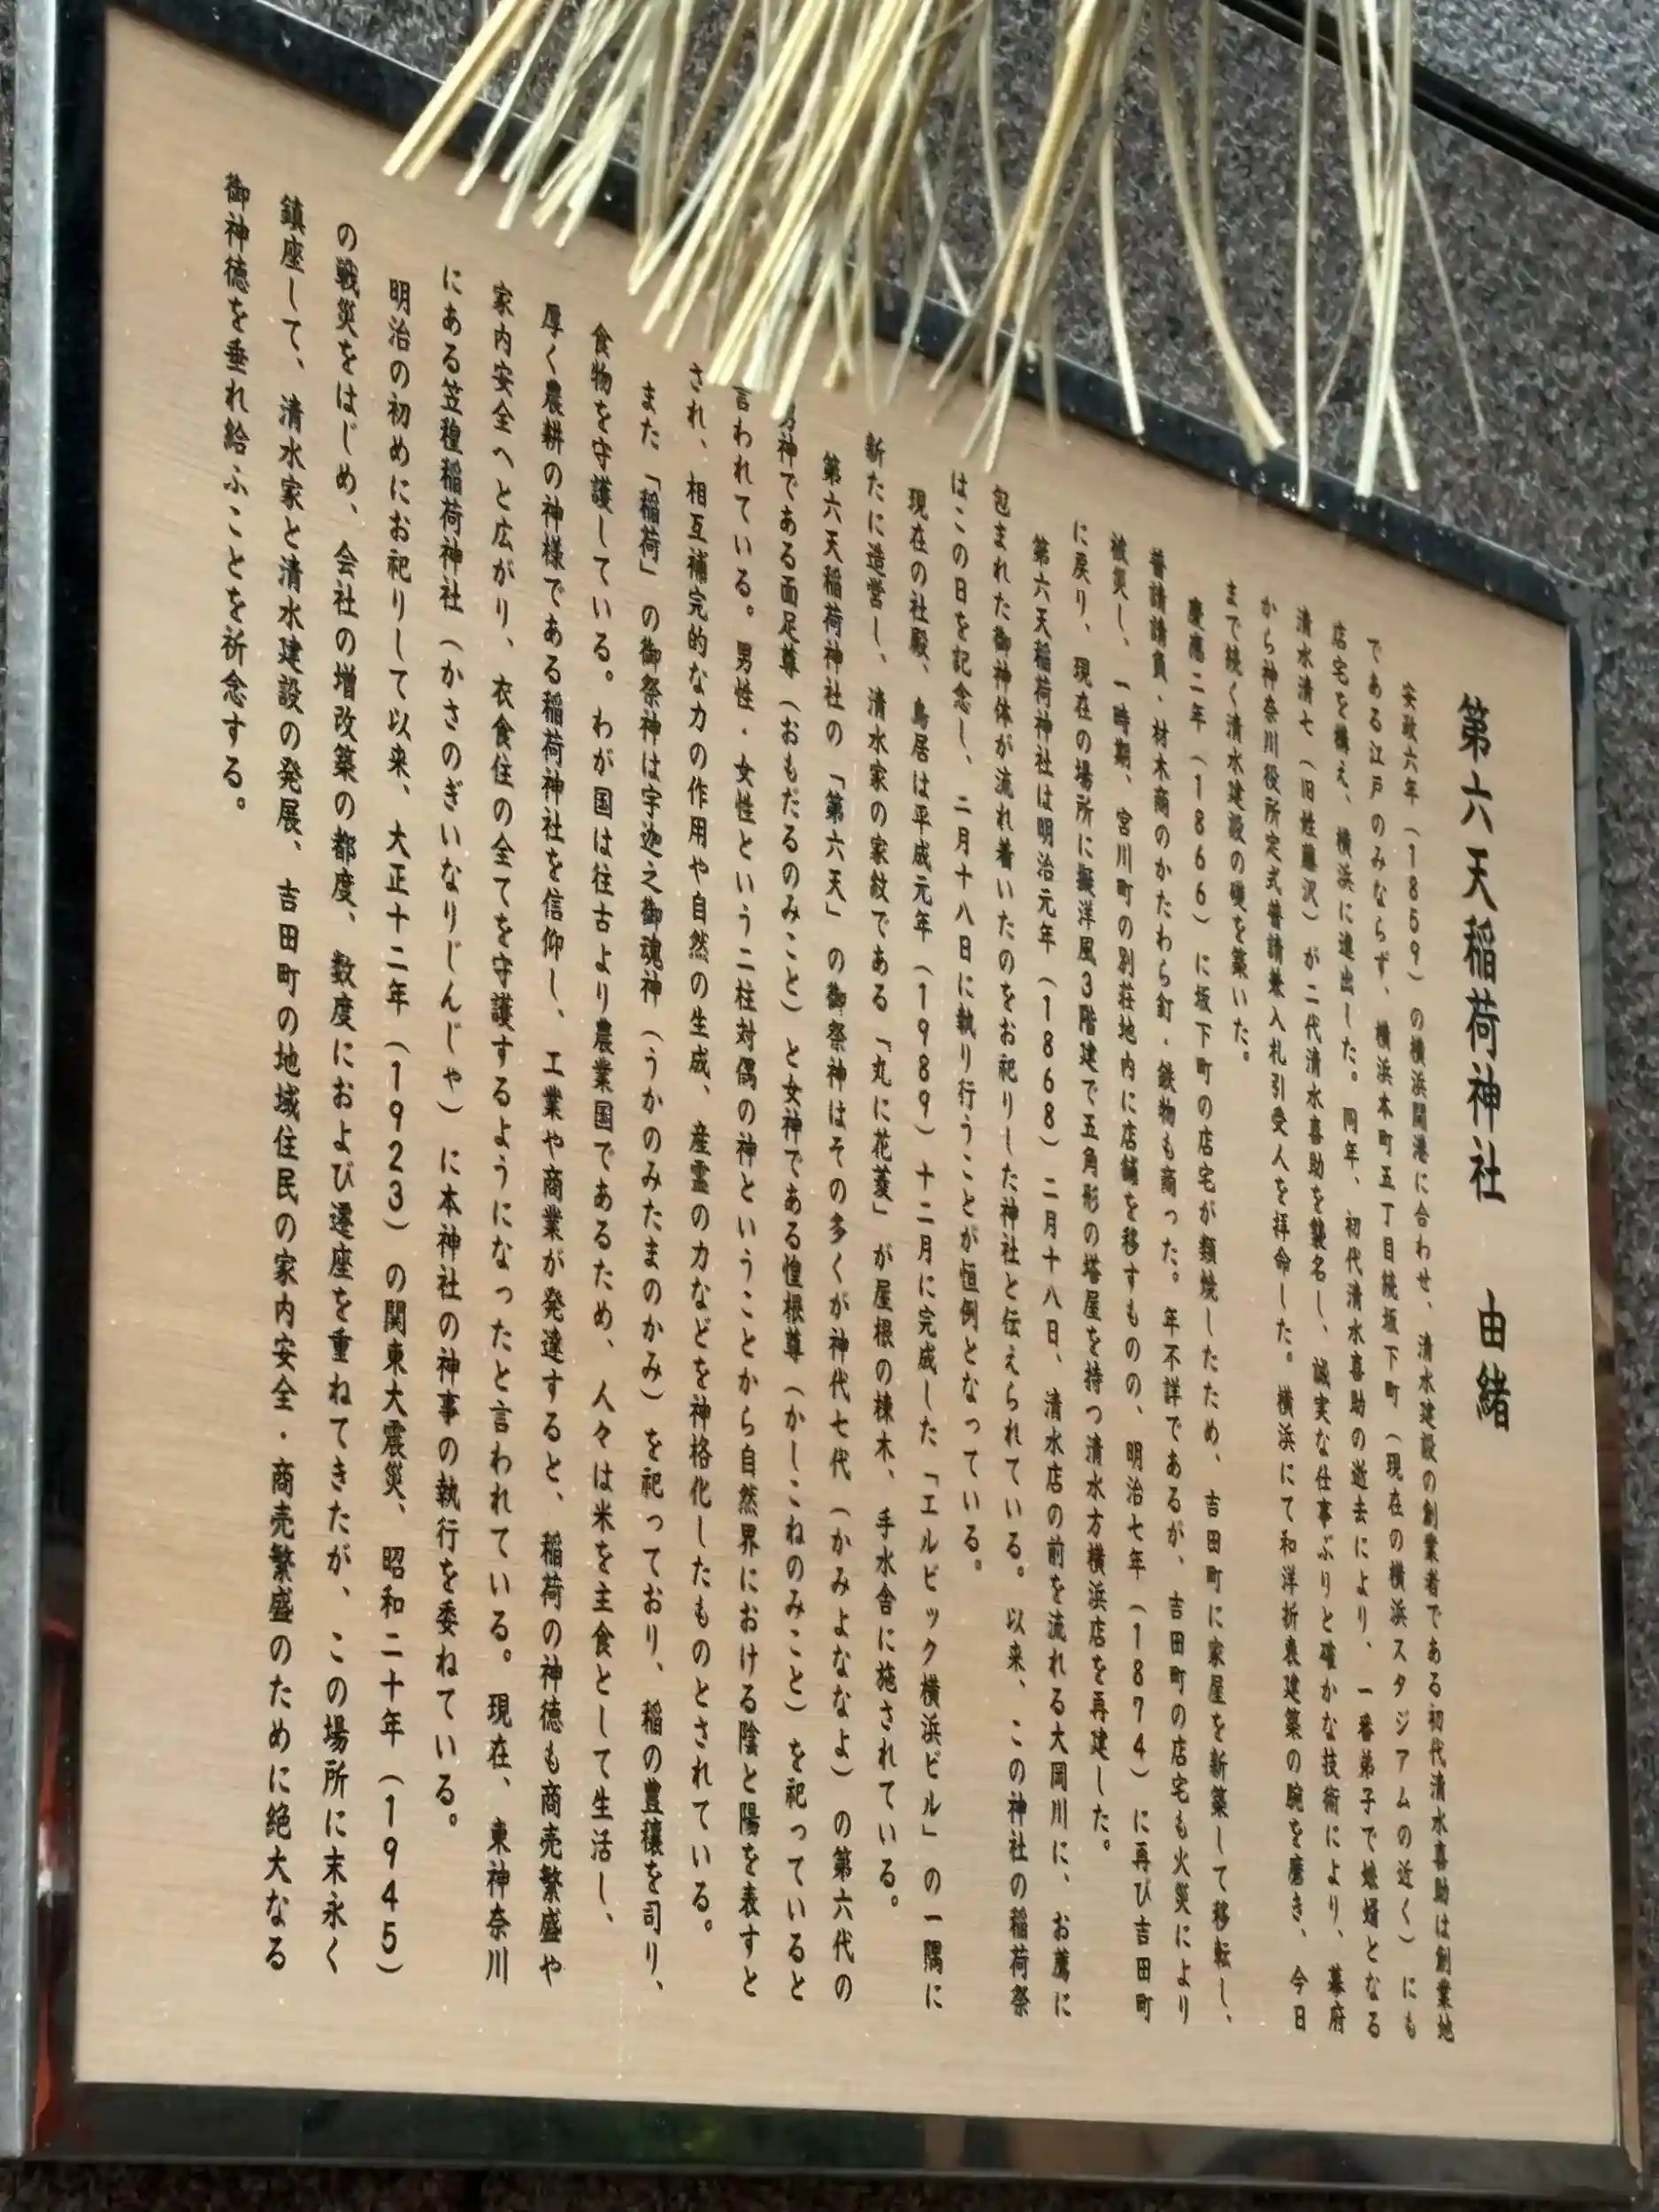 第六天稲荷神社 由緒
安政六年(1859)の横浜開港に合わせ、清水建設の創業者である初代清水喜助は創業地
である江戸のみならず、横浜本町五丁目続坂下町(現在の横浜スタジアムの近く)にも
店宅を構え、横浜に進出した。同年、初代清水喜助の逝去により、一番弟子で娘婿となる
清水清七(旧姓藤沢)が二代清水喜助を襲名し、誠実な仕事ぶりと確かな技術により、幕府
から神奈川役所定式普請兼入札引受人を拝命した。横浜にて和洋折衷建築の腕を磨き、今日
まで続く清水建設の礎を築いた。
慶應二年(1866)に坂下町の店宅が類焼したため、吉田町に家屋を新築して移転し、
普請請負・材木商のかたわら釘・鉄物も商った。年不詳であるが、吉田町の店宅も火災により
被災し、一時期、宮川町の別荘地内に店舗を移すものの、明治七年(1874)に再び吉田町
に戻り、現在の場所に擬洋風3階建で五角形の塔屋を持つ清水方横浜店を再建した。
第六天稲荷神社は明治元年(1868)二月十八日、清水店の前を流れる大岡川に、お薦に
包まれた御神体が流れ着いたのをお祀りした神社と伝えられている。以来、この神社の稲荷祭
はこの日を記念し、二月十八日に執り行うことが恒例となっている。
現在の社殿、鳥居は平成元年(1989)十二月に完成した「エルビック横浜ビル」の一隅に
新たに造営し、清水家の家紋である「丸に花菱」が屋根の棟木、手水舎に施されている。
第六天稲荷神社の「第六天」の御祭神はその多くが神代七代(かみよななよ)の第六代の
男神である面足尊(おもだるのみこと)と女神である惶根尊(かしこねのみこと)を祀っていると
言われている。男性・女性という二柱対偶の神ということから自然界における陰と陽を表すと
され、相互補完的な力の作用や自然の生成、産霊の力などを神格化したものとされている。
また「稲荷」の御祭神は宇迦之御魂神(うかのみたまのかみ)を祀っており、稲の豊穣を司り、
食物を守護している。わが国は往古より農業国であるため、人々は米を主食として生活し、
厚く農耕の神様である稲荷神社を信仰し、工業や商業が発達すると、稲荷の神徳も商売繁盛や
家内安全へと広がり、衣食住の全てを守護するようになったと言われている。現在、東神奈川
にある笠䅣稲荷神社(かさのぎいなりじんじゃ)に本神社の神事の執行を委ねている。
明治の初めにお祀りして以来、大正十二年(1923)の関東大震災、昭和二十年(1945)
の戦災をはじめ、会社の増改築の都度、数度におよび遷座を重ねてきたが、この場所に末永く
鎮座して、清水家と清水建設の発展、吉田町の地域住民の家内安全・商売繁盛のために絶大なる
御神徳を垂れ給ふことを祈念する。